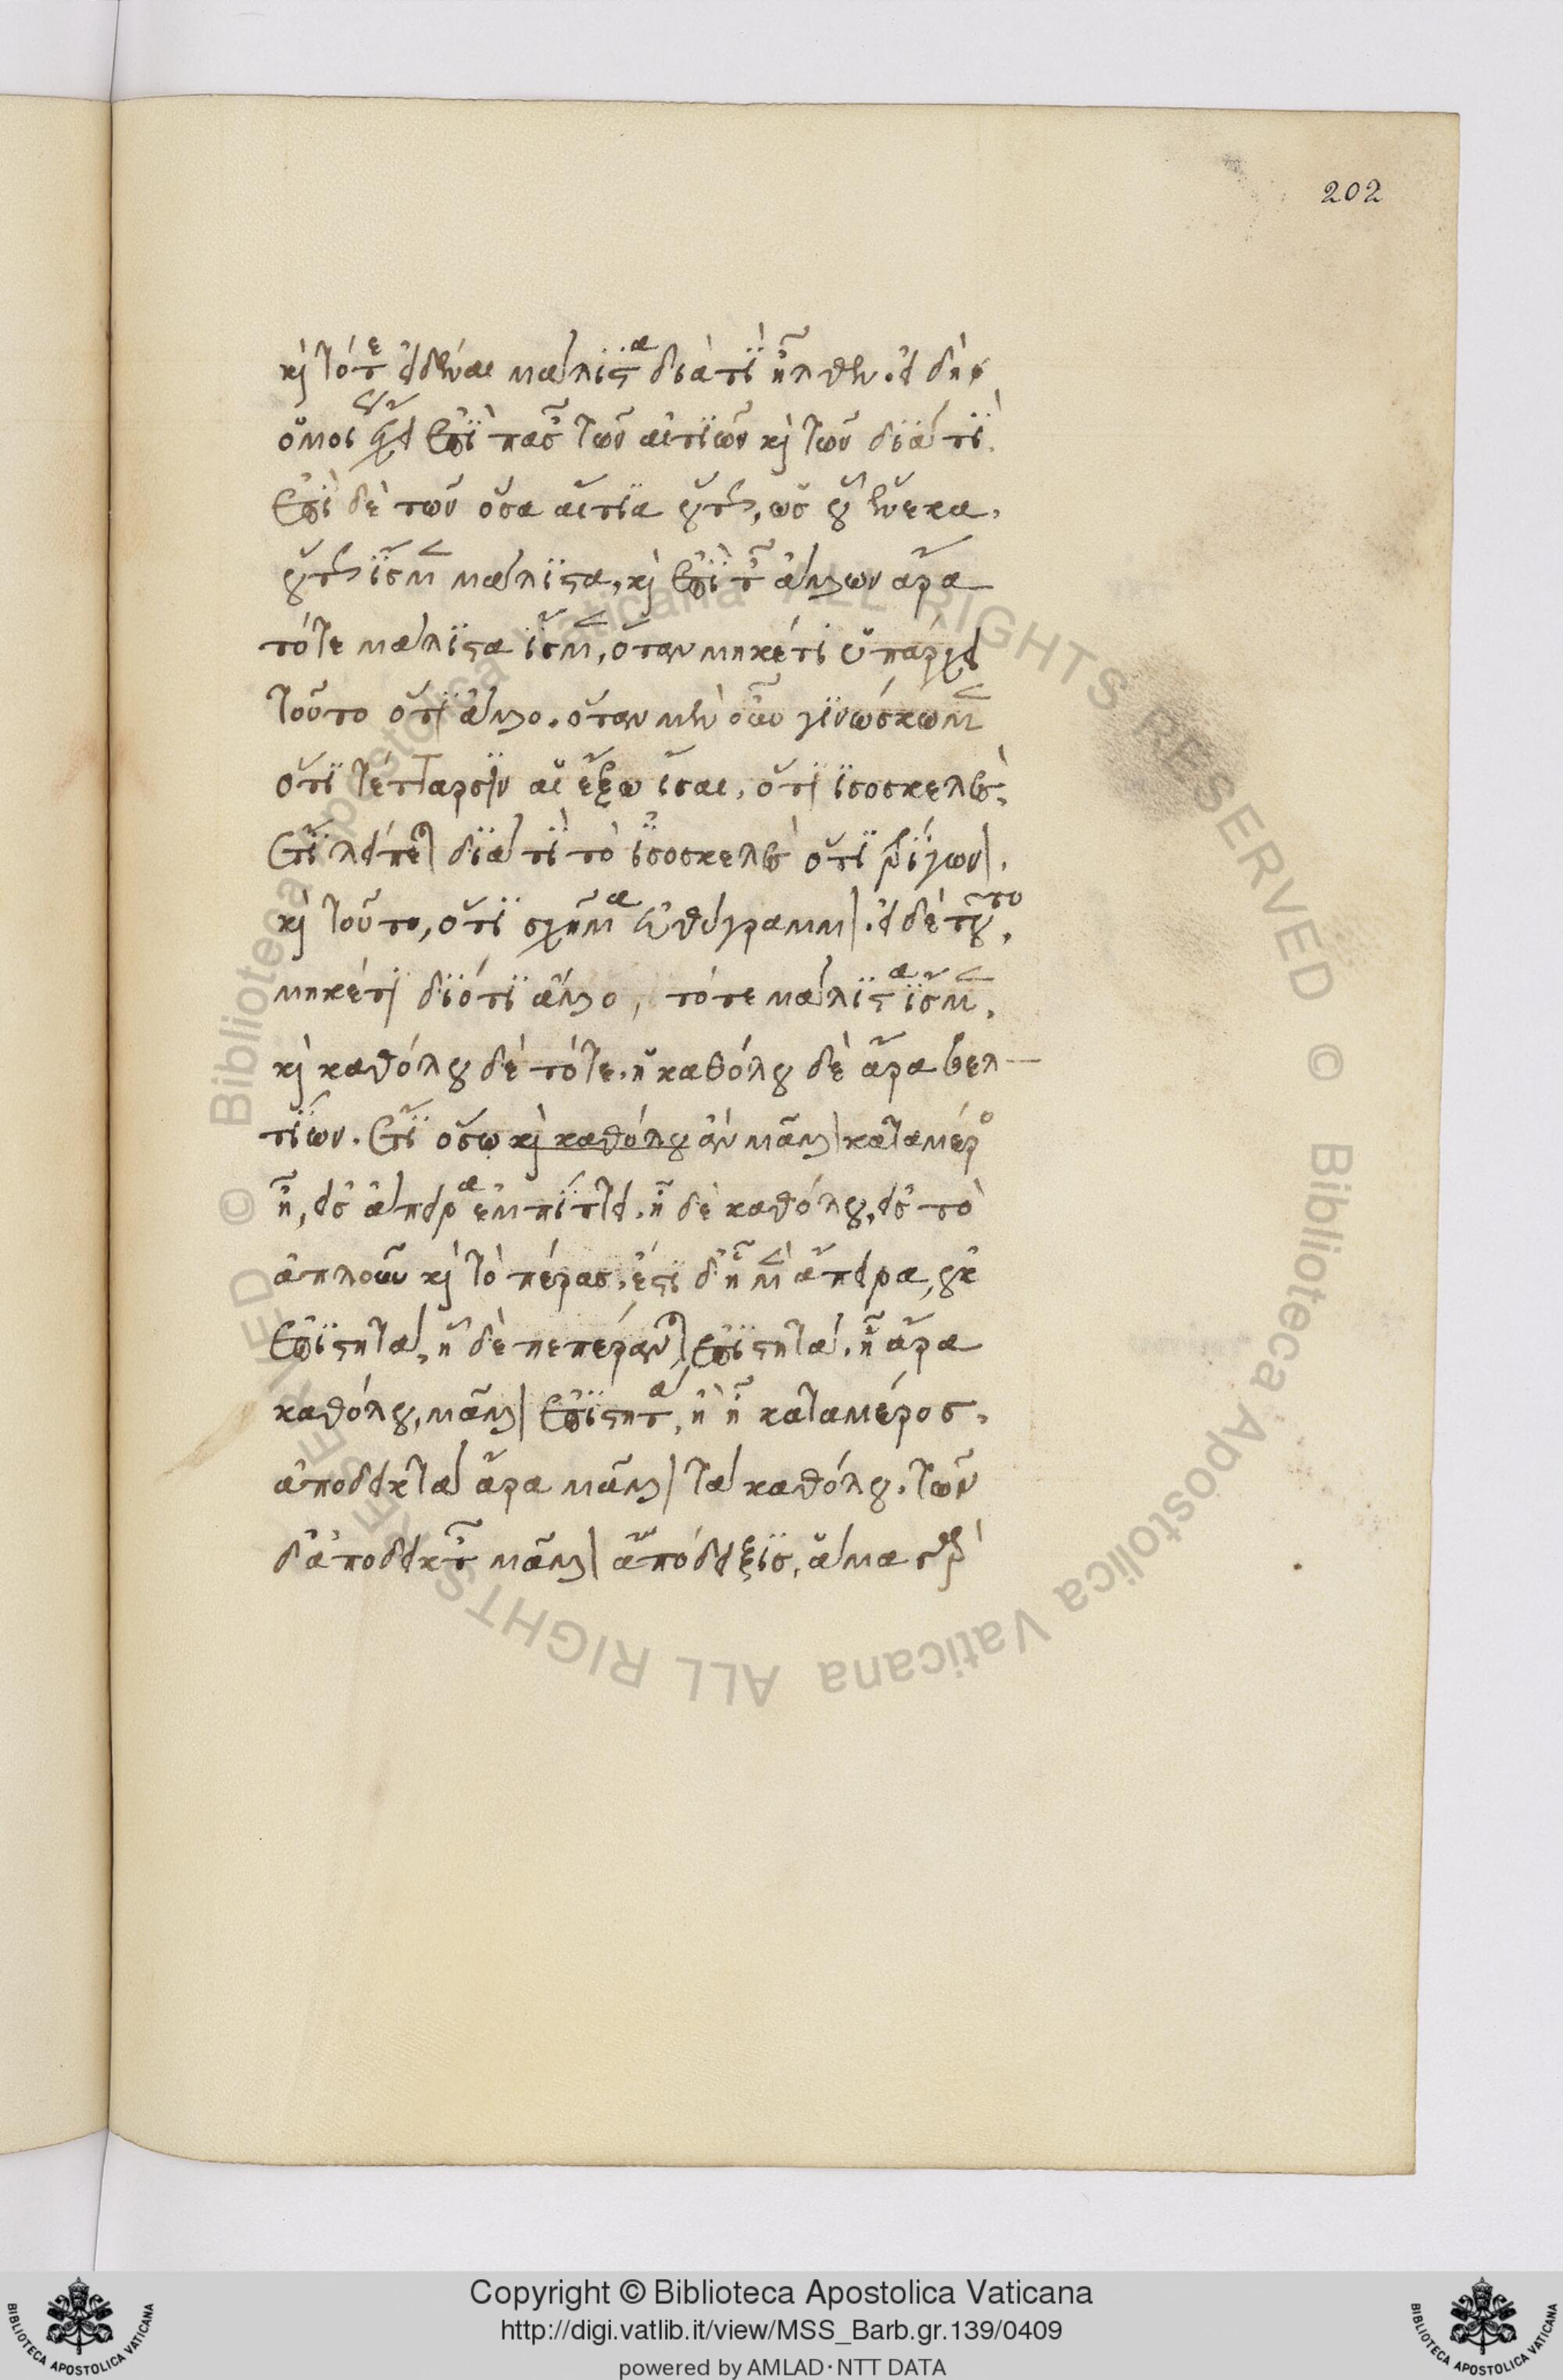 202
καὶ τότε εἰδέναι μάλιστα διὰ τί ἦλθεν. εἰ δὴ
ὅμοι ἔχει ἐπὶ πασῶν τῶν αἰτιῶν καὶ τῶν διὰ τί.
ἐπὶ δὲ τῶν ὅσα αἴτια οὕτως, ὡς οὗ ἕνεκα,
οὕτως ἴσμεν μάλιστα, καὶ ἐπὶ τῶν ἄλλων ἄρα
τότε μάλιστα ἴσμεν, ὅταν μηκέτι ὑπάρχει
τοῦτο ὅτι ἄλλο. ὅταν μὲν οὖν γινώσκωμεν
ὅτι τέτταρσιν αἱ ἔξω ἴσαι, ὅτι ἰσοσκελὲς,
ἔτι λείπεται διὰ τί τὸ ἰσοσκελὲς ὅτι τρίγωνον.
καὶ τοῦτο, ὅτι σχῆμα εὐθύγραμμον. εἰ δὲ τοῦτο,
μηκέτι διότι ἄλλο, τότε μάλιστα ἴσμεν.
καὶ καθόλου δὲ τότε. ἡ καθόλου δὲ ἄρα βελ-
τίων. ἔτι ὅσῳ καὶ καθόλου ἂν μᾶλλον κατὰ μέρος
ᾖ, εἰς ἄπειρα ἐμπίπτει. ἡ δὲ καθόλου, εἰς τὸ
ἁπλοῦν καὶ τὸ πέρας. ἔστι δ' ᾗ μὲν ἄπειρα, οὐκ
ἐπιστητά, ᾗ δὲ πεπέρανται, ἐπιστητά. ᾗ ἄρα
καθόλου, μᾶλλον ἐπιστητά, ἢ ᾗ κατὰ μέρος.
ἀποδεικτὰ ἄρα μᾶλλον τὰ καθόλου. τῶν
δ' ἀποδεικτῶν μᾶλλον ἀπόδειξις, ἅμα γὰρ
© Biblioteca Apostolica Vaticana ALL RIGHTS RESERVED © Biblioteca Apostolica Vaticana ALL RIGHTS RESERVED
Copyright © Biblioteca Apostolica Vaticana
http://digi.vatlib.it/view/MSS_Barb.gr.139/0409
powered by AMLAD·NTT DATA
BIBLIOTECA APOSTOLICA VATICANA
BIBLIOTECA APOSTOLICA VATICANA